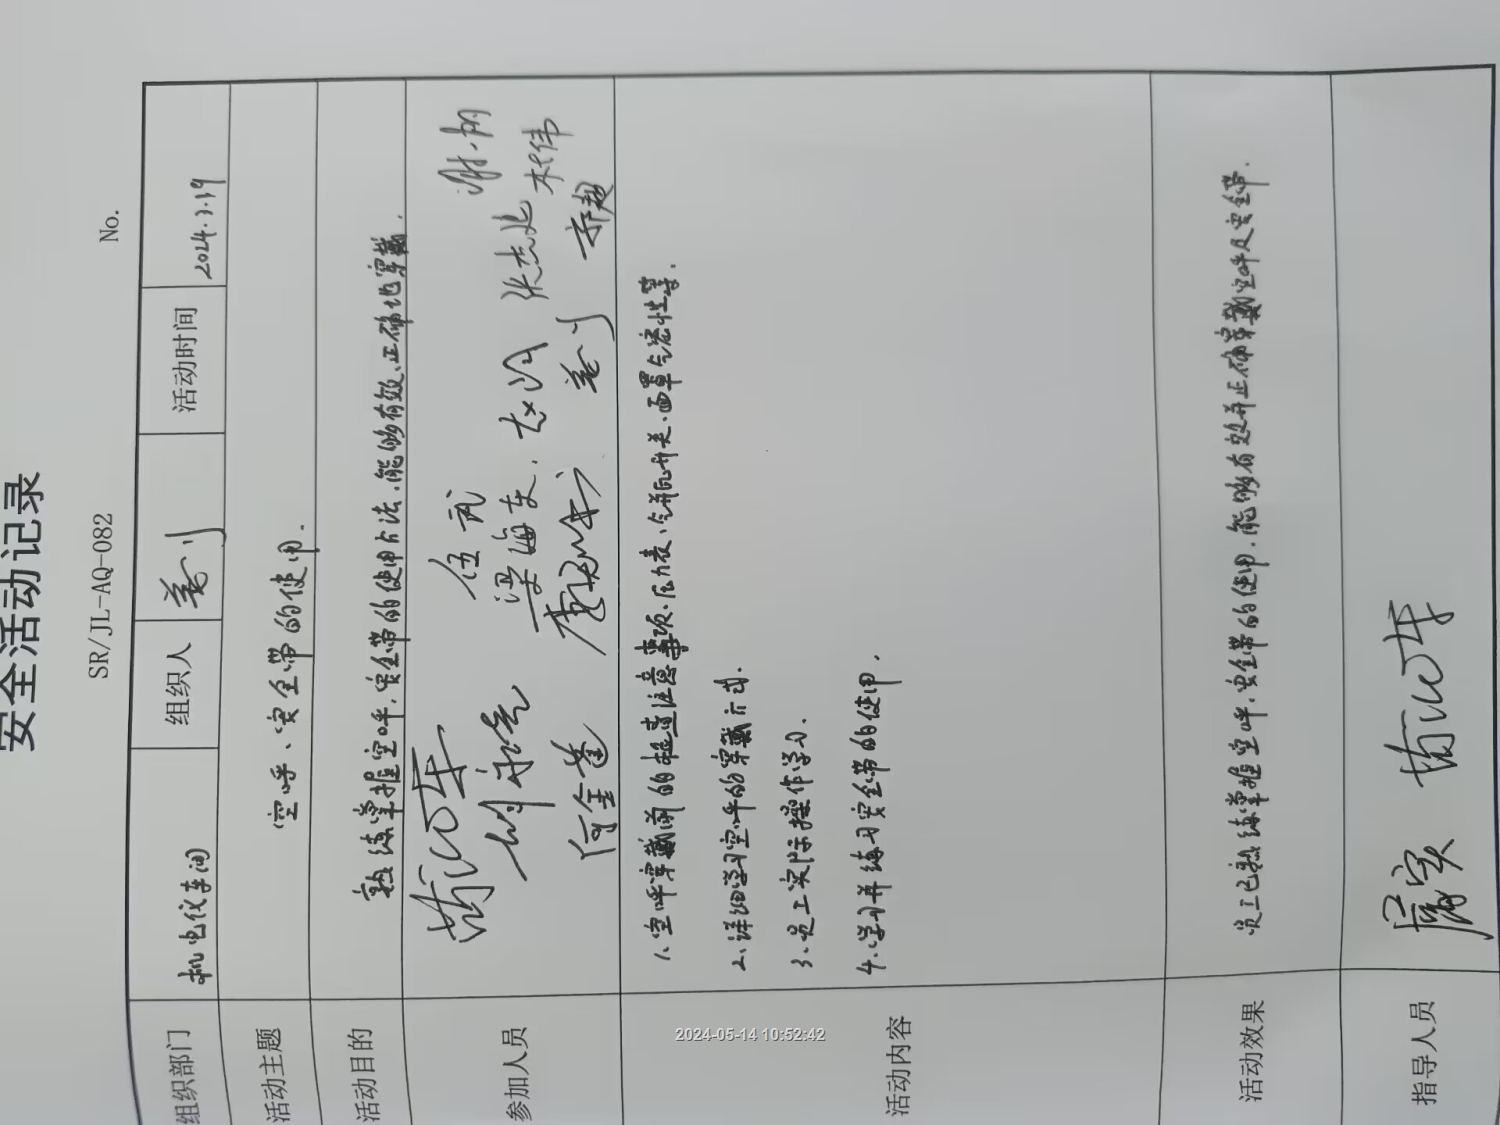 安全活动记录
SR/JL-AQ-082
No.
组织部门 机电仪车间 组织人 活动时间 2024.3.19
活动主题 空呼、安全带的使用.
活动目的 熟练掌握空呼,安全带的使用方法,能够有效、正确地穿戴.
参加人员
伍武
梁海东
张杰 林伟
何金莲 乔超
活动内容
1、空呼穿戴前的检查注意事项、压力表、气瓶开关、面罩气密性等.
2、详细学习空呼的穿戴方式.
3、员工实际操作学习.
4、学习并练习安全带的使用.
活动效果 员工已熟练掌握空呼,安全带的使用,能够有效并正确穿戴空呼及安全带.
指导人员
2024-05-14 10:52:42